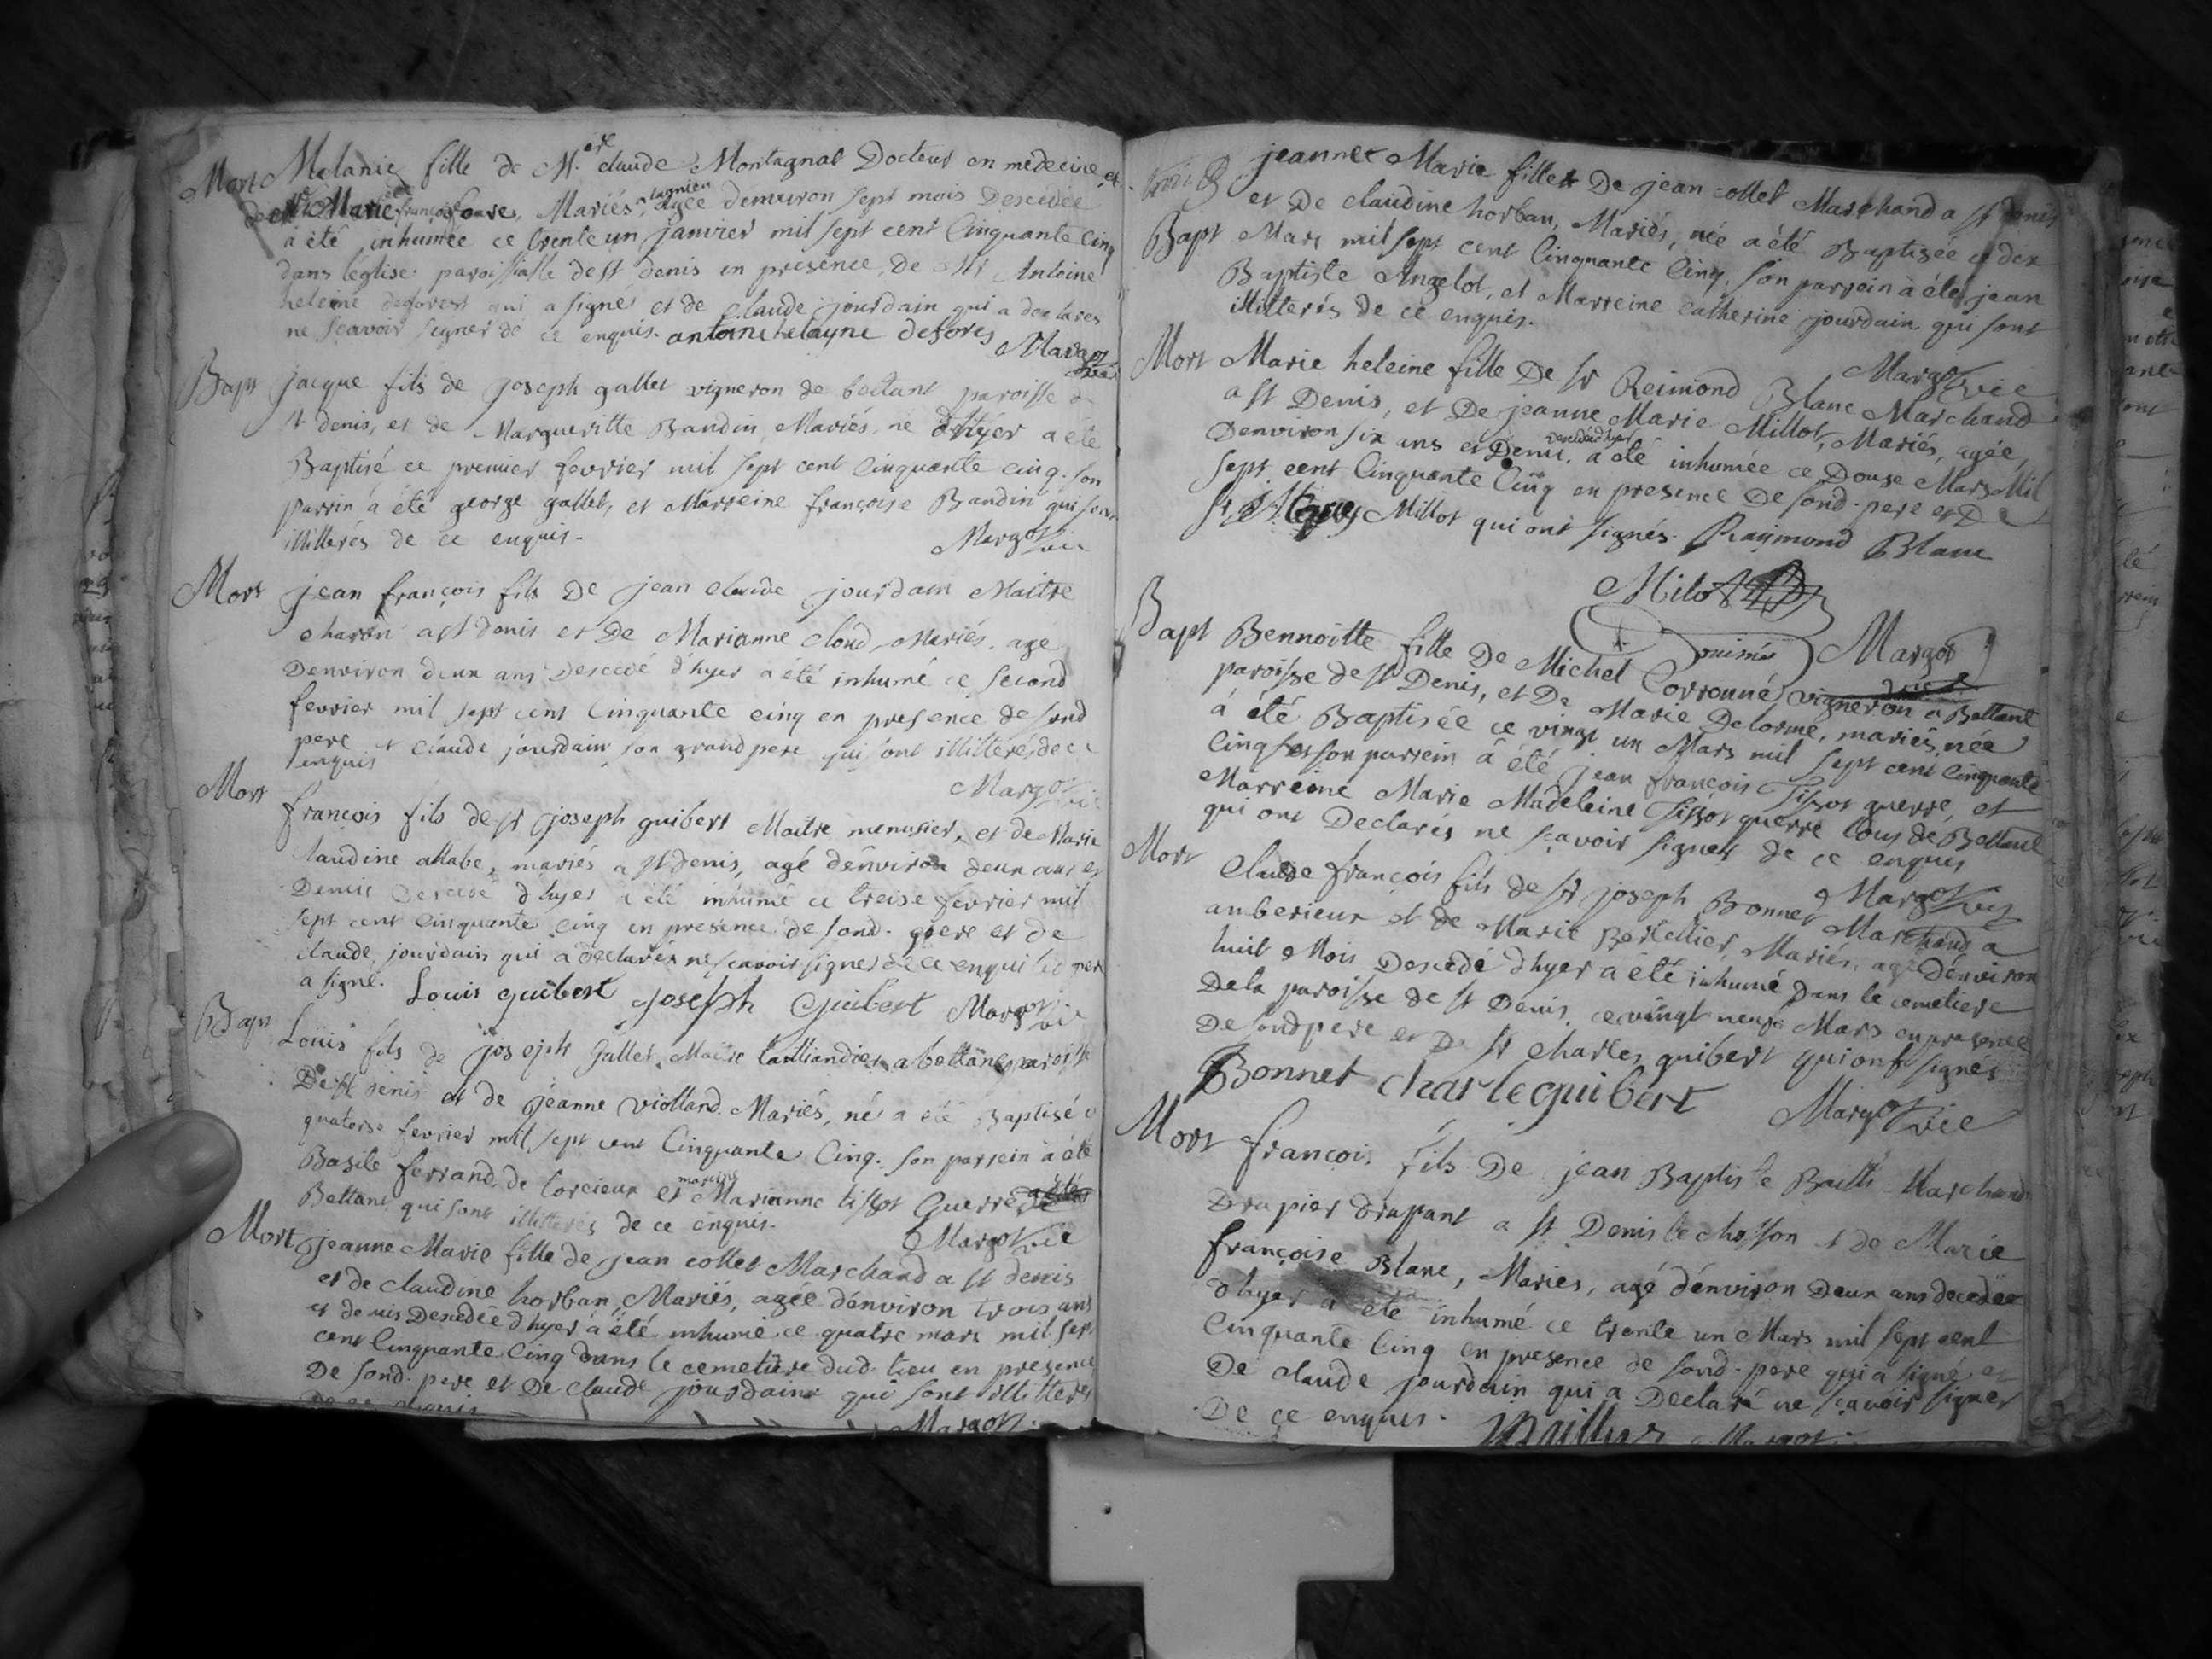 Mort Melanie fille de Mr claude Montagnat Docteur en medecine et
de Marie françoise favre, Mariés, agée denviron sept mois Descedée
à été inhumée ce trente un janvier mil sept cent Cinquante Cinq
dans leglise paroissialle de st denis en presence de Mr Antoine
heleine deforest qui a signé et de Claude jourdain qui a declares
ne scavoir signer de ce enquis. antoine helayne defores Margot
vic
Bapt jacque fils de joseph gallet vigneron de bettant paroisse de
st denis, et de Margueritte Baudin Mariés, né a été
Baptisé ce premier fevrier mil sept cent Cinquante cinq. son
parrin a été george gallet, et Marreine françoise Baudin qui sont
illitterés de ce enquis.
Margot vic
Mort jean françois fils De jean claude jourdain Maitre
charon a st denis et De Marianne Cloud, Mariés, age
Denviron deux ans Descedé d'hyer a été inhumé ce second
fevrier mil sept cent Cinquante cinq en presence de sond
pere et Claude jourdain son grand pere qui sont illitterés de ce
enquis
Margot vic
Mort françois fils de sr joseph guibert Maitre menusier, et de Marie
laudine allabe, mariés a st denis, agé d'environ deux ans et
Demis Descedé d'hyer a été inhumé ce treise fevrier mil
sept cent Cinquante Cinq en presence de sond. pere et de
claude jourdain qui a declarés ne scavoir signer de ce enqui le pere
a signé. Louis guibert joseph Guibert Margot vic
Bapt Louis fils de joseph Gallet Maitre taillandier a bettans paroisse
De st denis et de jeanne violland Mariés, né a été Baptisé ce
quatorse fevrier mil sept cent Cinquante Cinq. son parrein à été
Basile ferrand de torcieux et mareine Marianne tissot Guerre de
Bettant qui sont illitterés de ce enquis.
Margot vic
Mort jeanne Marie fille de jean collet Marchand a st denis
et de claudine horban Mariés, agée d'environ trois ans
et demis Descedée d'hyer a été inhumé ce quatre mars mil sept
cent Cinquante Cinq dans le cemetiere dud. lieu en presence
De sond. pere et De claude jourdain qui sont illitteres
De ce enquis
Margot
jeanne Marie fille De jean collet Marchand a st denis
Bapt et De claudine horban, Mariés, née a été Baptisée ce dex
Mars mil sept cent Cinquante Cinq. son parrein à été jean
Baptiste Angelot, et Marreine Catherine jourdain qui sont
illitterés de ce enquis.
Margot vic
Mort Marie heleine fille De sr Reimond Blanc Marchand
a st Denis, et De jeanne Marie Millot, Mariés, agée
Denviron six ans et Demi descedée d'hyer a été inhumée ce Douze Mars Mil
sept cent Cinquante Cinq en presence De sond. pere et De
sr Millot qui ont signés. Raymond Blanc
Milot
Margot
vic
Bapt Bennoitte fille De Michel Corronné vigneron a Bettant
paroisse de st Denis, et De Marie Delorme, mariés, née
à été Baptisée ce vingt un Mars mil sept cent Cinquante
Cinq son parrein à été jean françois Tissot guerre, et
Marreine Marie Madeleine Tissot guerre tous de Bettant
qui ont Declarés ne sçavoir signer de ce enquis
Margot vic
Mort Claude françois fils de sr joseph Bonnet Marchand a
amberieux et de Marie Bertellier, Mariés, agé d'environ
huit Mois Descedé d'hyer a été inhumé dans le cemetiere
De la paroisse de st Denis, ce vingt neuf Mars en presence
De sond pere et De sr charles guibert qui ont signés
Bonnet charle guibert
Margot vic
Mort françois fils De jean Baptiste Marchand
Drapier drapant a st Denis le chosson et de Marie
françoise Blanc, Maries, agé d'environ Deux ans decedée
d'hyer a été inhumé ce trente un Mars mil sept cent
Cinquante Cinq en presence de sond. pere qui a signé et
De claude jourdain qui a Declaré ne sçavoir signer
De ce enquis.
Margot